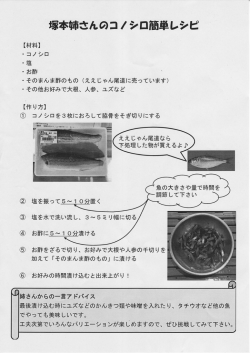 塚本姉さんのコノシロ簡単レシピ
【材料】
・コノシロ
・塩
・お酢
・そのまんま酢のもの（ええじゃん尾道に売っています）
・その他お好みで大根、人参、ユズなど
【作り方】
① コノシロを３枚におろして脇骨をそぎ切りにする
ええじゃん尾道なら
下処理した物が買えるよ♪
魚の大きさや量で時間を
調節して下さい
② 塩を振って５～１０分置く
③ 塩を水で洗い流し、３～５ミリ幅に切る
④ お酢に５～１０分漬ける
⑤ お酢をざるで切り、お好みで大根や人参の千切りを
加えて「そのまんま酢のもの」に漬ける
⑥ お好みの時間漬け込むと出来上がり！
姉さんからの一言アドバイス
最後漬け込む時にユズなどのかんきつ類や味噌を入れたり、タチウオなど他の魚
でやっても美味しいです。
工夫次第でいろんなバリエーションが楽しめますので、ぜひ挑戦してみて下さい。